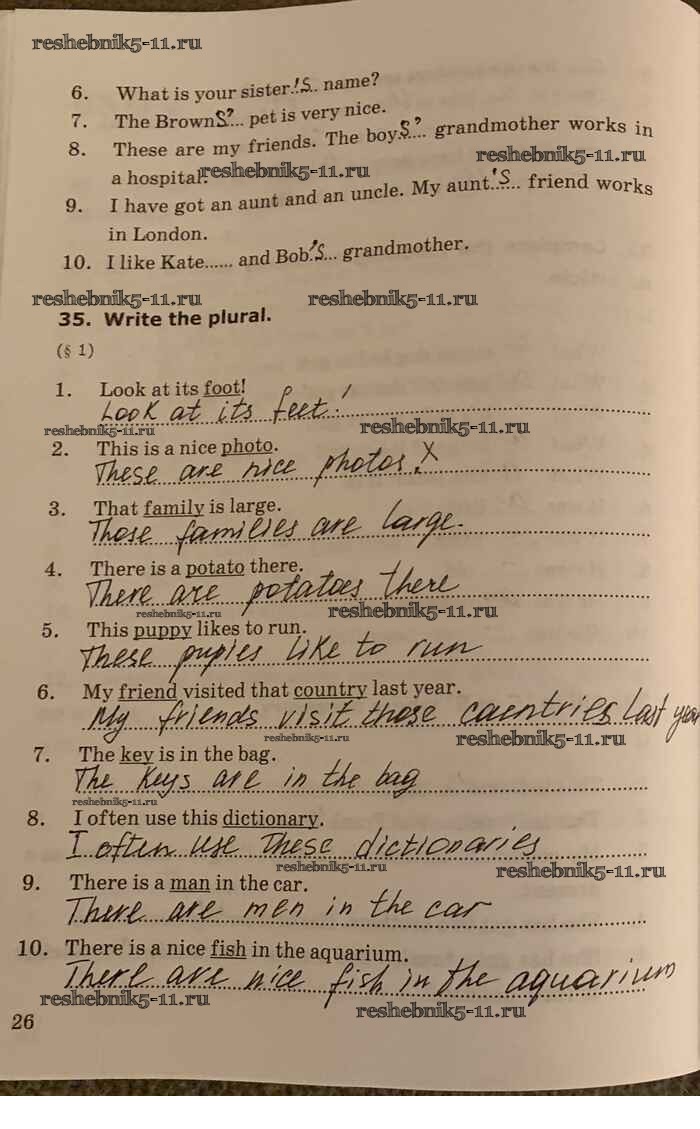 reshebnik5-11.ru
6. What is your sister.'s.. name?
7. The Browns'... pet is very nice.
8. These are my friends. The boys'... grandmother works in
reshebnik5-11.ru
a hospital.
reshebnik5-11.ru
9. I have got an aunt and an uncle. My aunt.'s... friend works
in London.
10. I like Kate...... and Bob.'s... grandmother.
reshebnik5-11.ru reshebnik5-11.ru
35. Write the plural.
(§ 1)
1. Look at its foot!
Look at its feet!
reshebnik5-11.ru reshebnik5-11.ru
2. This is a nice photo.
These are nice photos.
3. That family is large.
Those families are large.
4. There is a potato there.
There are potatoes there
reshebnik5-11.ru reshebnik5-11.ru
5. This puppy likes to run.
These pupies like to run
6. My friend visited that country last year.
My friends visit those countries last year
reshebnik5-11.ru reshebnik5-11.ru
7. The key is in the bag.
The keys are in the bag
reshebnik5-11.ru
8. I often use this dictionary.
I often use these dictionaries
reshebnik5-11.ru reshebnik5-11.ru
9. There is a man in the car.
There are men in the car
10. There is a nice fish in the aquarium.
There are nice fish in the aquarium
reshebnik5-11.ru reshebnik5-11.ru
26